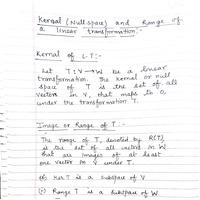 Kernal (Null space) and Range of
a linear transformation:-
Kernal of L.T:-
Let T: V → W be a linear
transformation. The kernal or null
space of T is the set of all
vectors in V, that maps to 0,
under the transformation T.
Image or Range of T :-
The range of T, denoted by R(T),
is the set of all vectors in W
that are images of at least
one vector in V under T.
Ker T is a subspace of V
Range T is a subspace of W